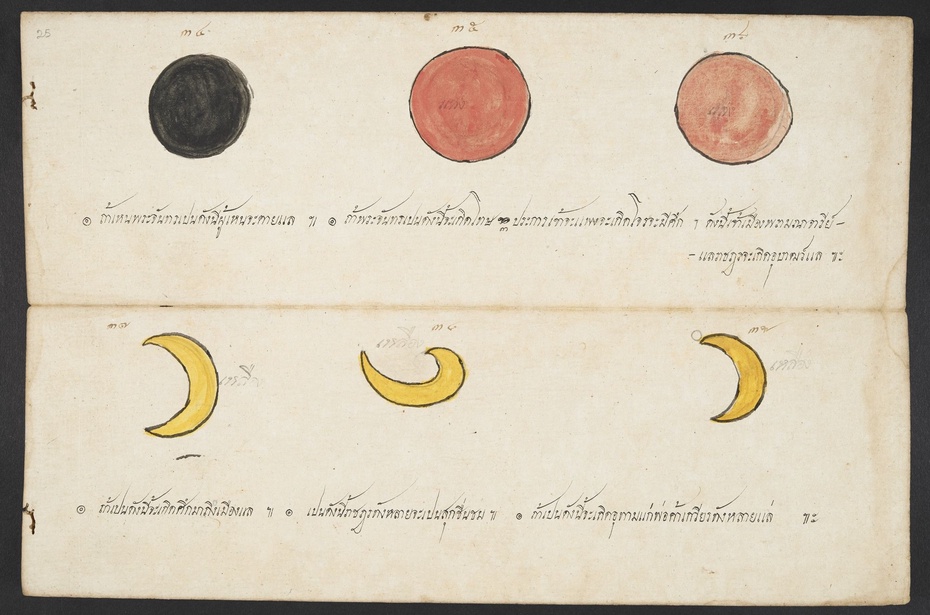 25
๓๔ ๓๕ ๓๖
แดง แดง
๏ ถ้าเหนพระจันทรเปนดังนี้ผู้เหนจะตายแล ๚ ๏ ถ้าพระจันทรเปนดังนี้จะเกิดโทษ ประการเข้าจะแพงจะเกิดโจรจะมีศึก ดังนี้เจ้าเมืองพราหมณ
แลราษฎรจะเกิดอุบาทว์แล ๚ะ
๓๗ ๓๘ ๓๙
เหลือง เหลือง เหลือง
๏ ถ้าเปนดังนี้จะเกิดศึกมาถึงเมืองแล ๚ ๏ เปนดังนี้ราษฎรทังหลายจะเปนสุกชื่นชม ๚ ๏ ถ้าเปนดังนี้จะเกิดแก่พ่อค้าเกวียรทังหลายแล ๚ะ